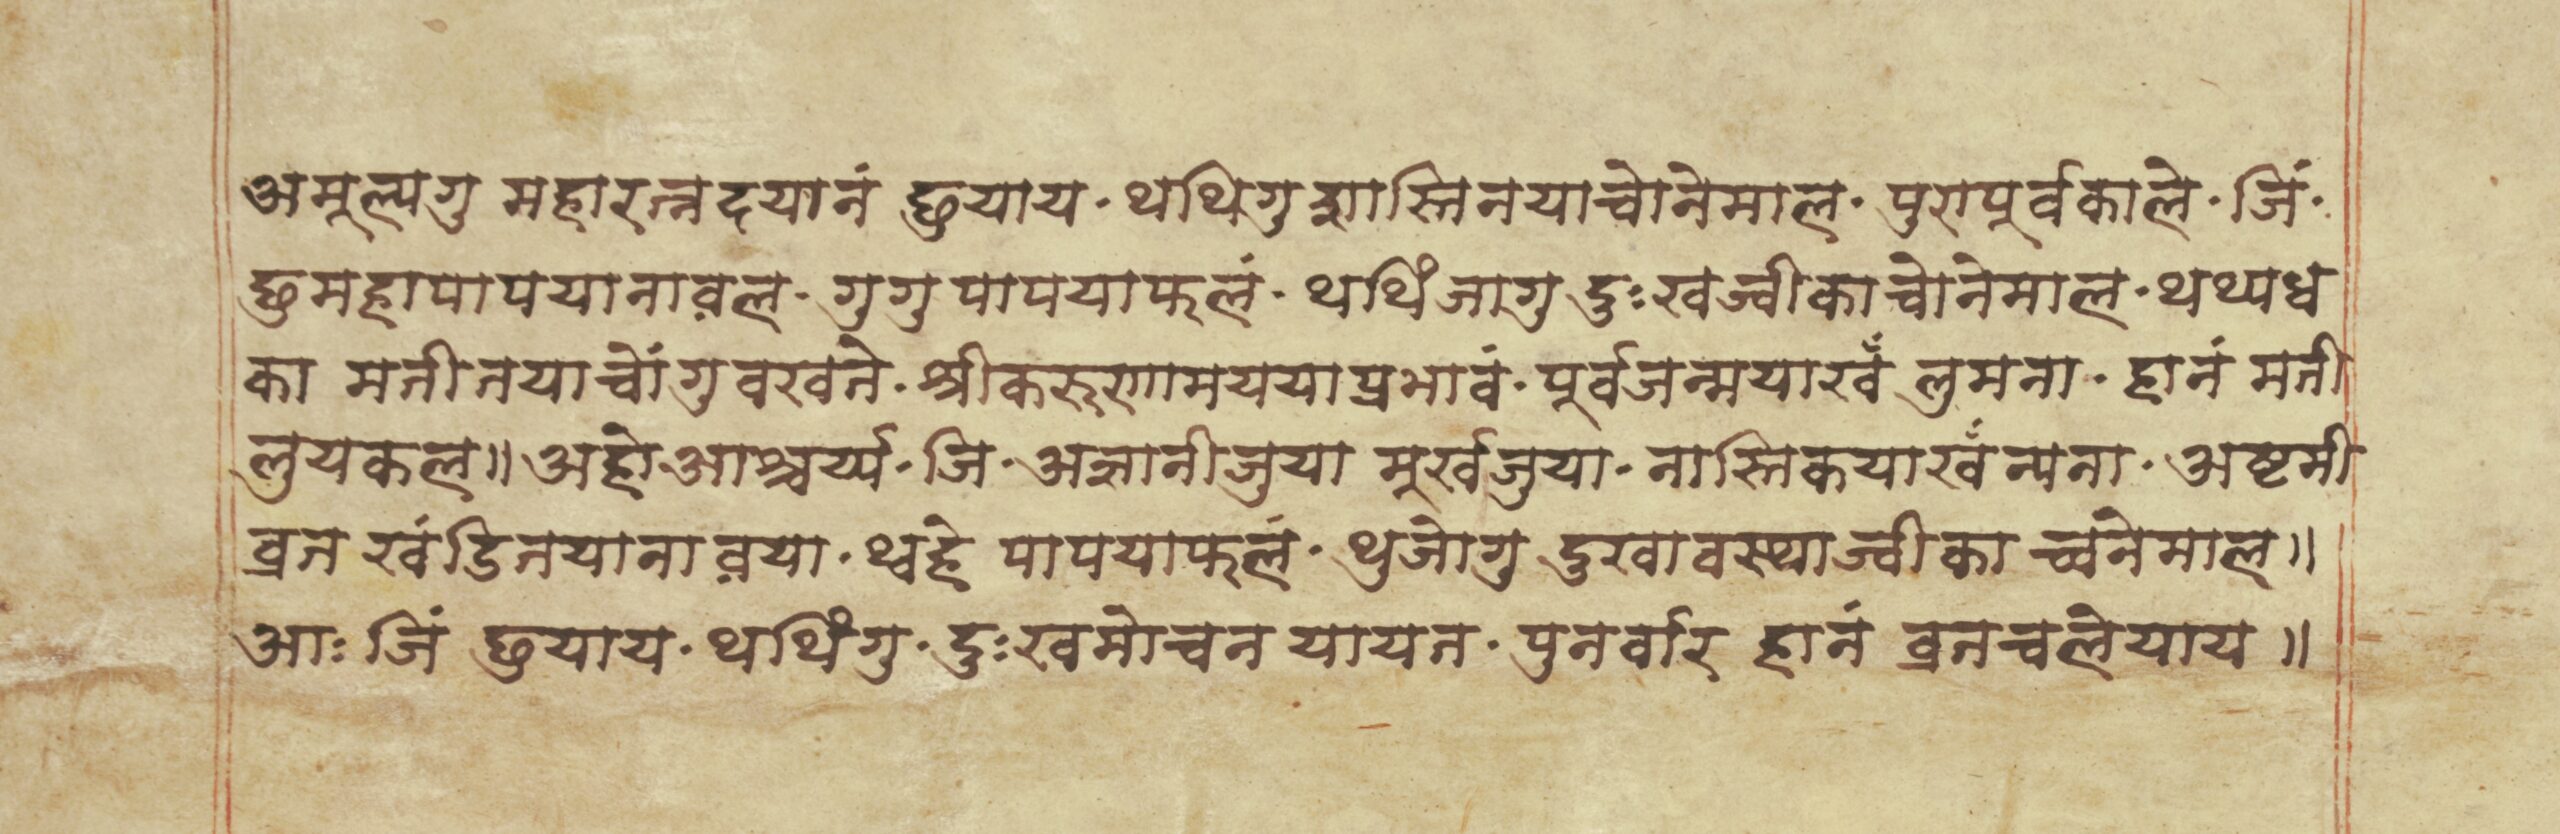 अमूल्यगु महारत्नदयानं छुयाय· थथिगुशास्तिनयाचोनेमाल· पुरापूर्वकाले· जिं·
छुमहापापयानावल· गुगुपापयाफलं· थथिंजागु दुःखज्वीकाचोनेमाल· थथ्यधव
का मतीतयाचोंगुवखने· श्रीकरुणामययाप्रभावं· पूर्वजन्मयाखँ लुमना· हानं मती
लुयकल॥ अहो आश्चर्य्य· जि· अज्ञानीजुया मूर्खजुया· नास्तिकयाखँन्यना· अष्टमी
व्रत खंडितयानावया· थ्वहे पापयाफलं· थुजोगु दुखावस्थाज्वीका च्वनेमाल॥
आः जिं छुयाय· थथिंगु· दुःखमोचन यायत· पुनर्वार हानं व्रतचलेयाय॥